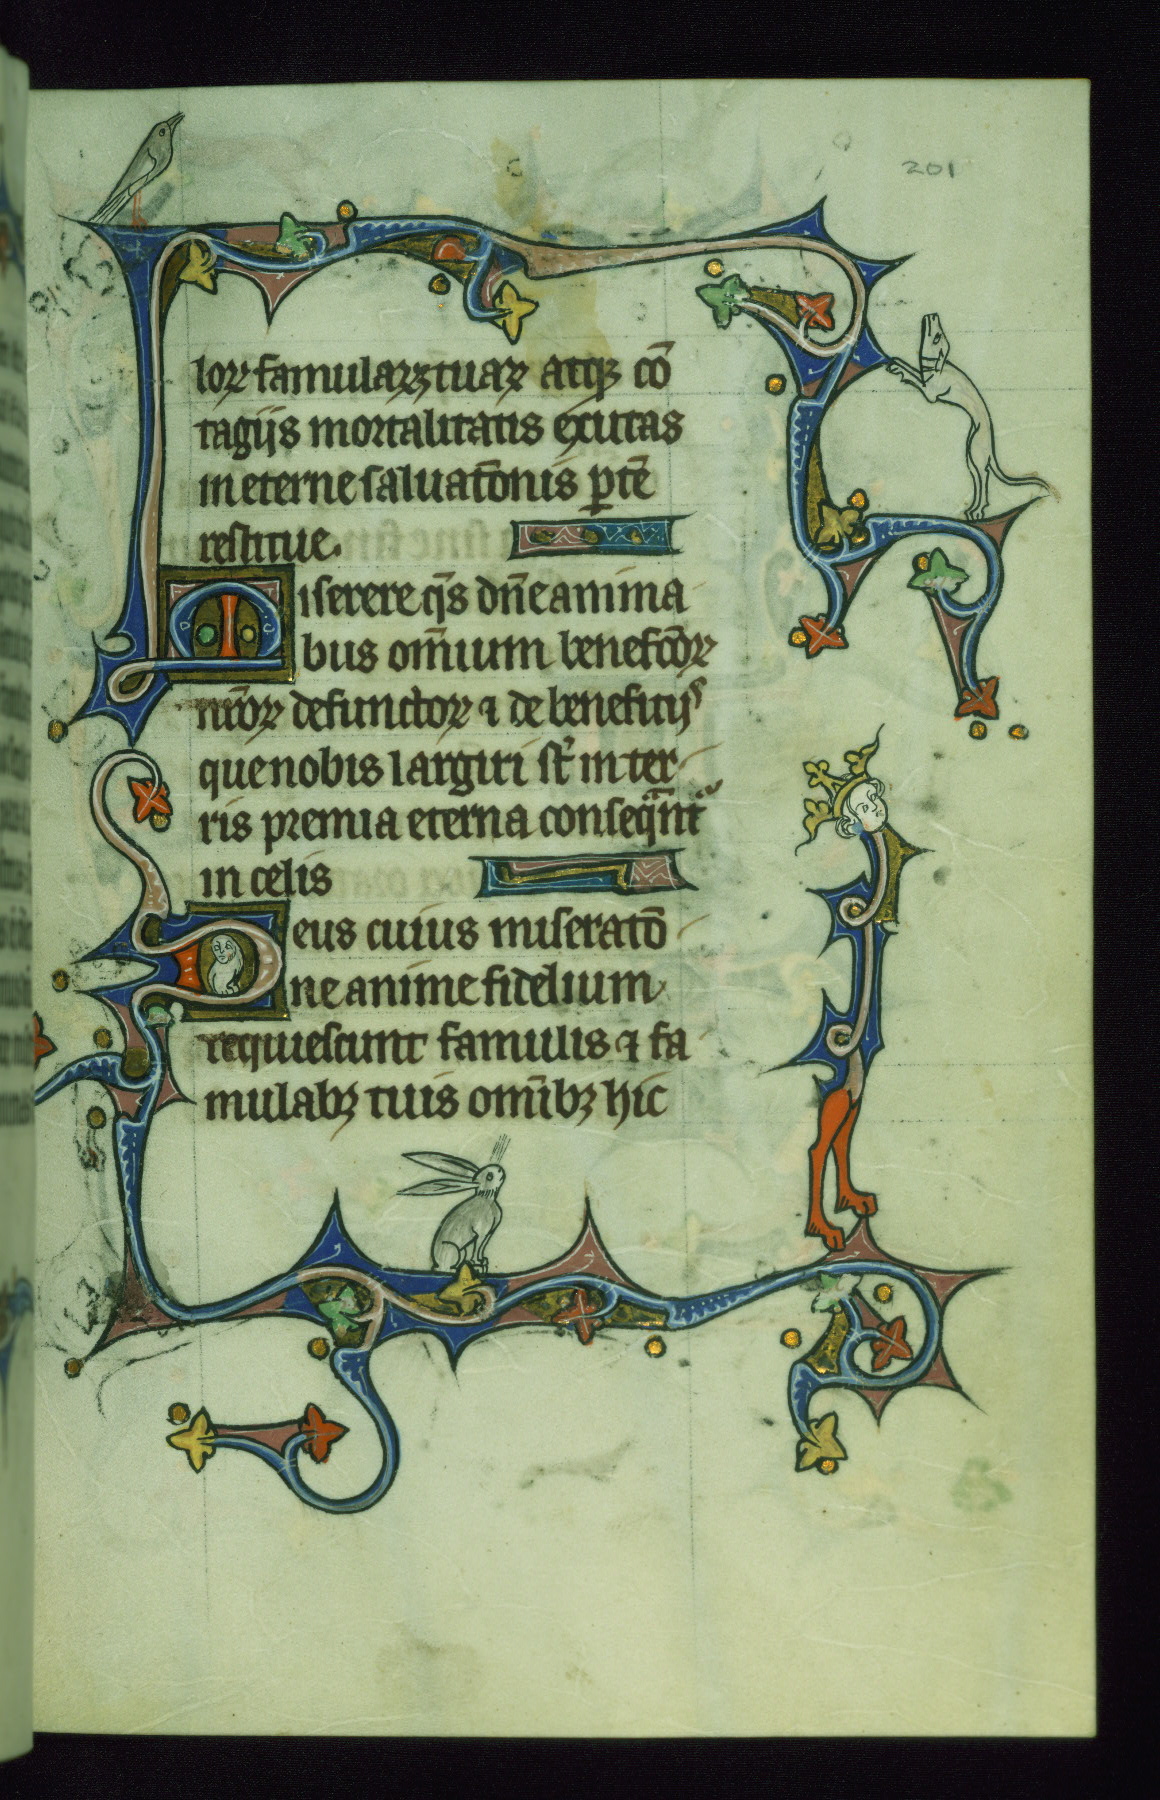 201
loꝝ famulaꝝ tuaꝝ atq3 cō
tagijs mortalitatis exutas
in eterne saluatōnis ꝑtē
restitue.
Miserere q̄s dn̄e anima
bus om̄ium benefc̄oꝝ
nr̄oꝝ defunctoꝝ ⁊ de beneficijs
que nobis largiti st̄ in ter
ris premia eterna conseq̄nt᷑
in celis
Deus cuius miseratō
ne anime fidelium
requiescunt famulis ⁊ fa
mulab3 tuis om̄ib3 hic